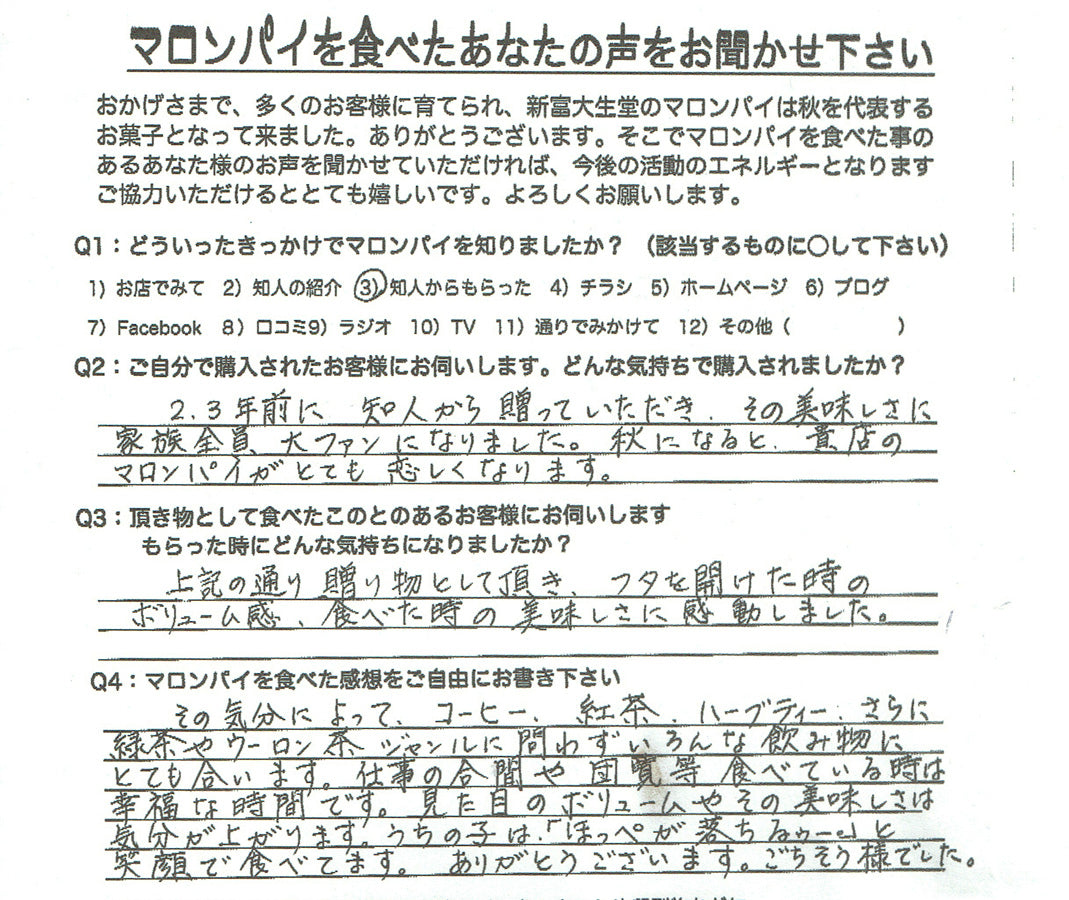 マロンパイを食べたあなたの声をお聞かせ下さい
おかげさまで、多くのお客様に育てられ、新富大生堂のマロンパイは秋を代表する
お菓子となって来ました。ありがとうございます。そこでマロンパイを食べた事の
あるあなた様のお声を聞かせていただければ、今後の活動のエネルギーとなります
ご協力いただけるととても嬉しいです。よろしくお願いします。
Q1：どういったきっかけでマロンパイを知りましたか？（該当するものに○して下さい）
1）お店でみて 2）知人の紹介 3）知人からもらった 4）チラシ 5）ホームページ 6）ブログ
7）Facebook 8）口コミ9）ラジオ 10）TV 11）通りでみかけて 12）その他（ ）
Q2：ご自分で購入されたお客様にお伺いします。どんな気持ちで購入されましたか？
2.3年前に 知人から贈っていただき、その美味しさに
家族全員、大ファンになりました。秋になると、貴店の
マロンパイがとても恋しくなります。
Q3：頂き物として食べたこのとのあるお客様にお伺いします
もらった時にどんな気持ちになりましたか？
上記の通り贈り物として頂き、フタを開けた時の
ボリューム感、食べた時の美味しさに感動しました。
Q4：マロンパイを食べた感想をご自由にお書き下さい
その気分によって、コーヒー、紅茶、ハーブティー、さらに
緑茶やウーロン茶 ジャンルに問わずいろんな飲み物に
とても合います。仕事の合間や団欒等 食べている時は
幸福な時間です。見た目のボリュームやその美味しさは
気分が上がります。うちの子は、「ほっぺが落ちるゥー」と
笑顔で食べてます。ありがとうございます。ごちそう様でした。